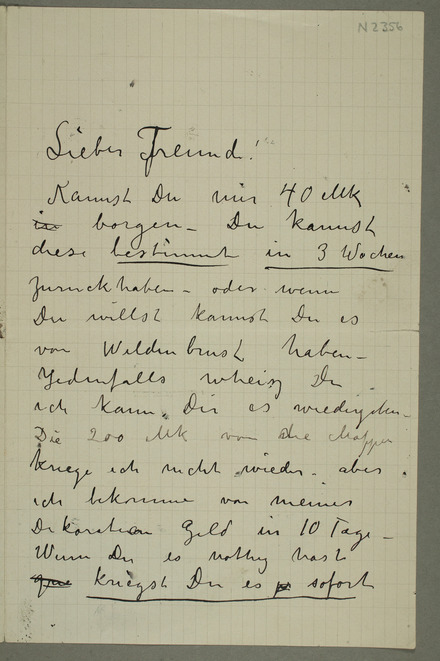 N 2356
Lieber Freund!
Kannst Du mir 40 Mk
borgen – Du kannst
diese bestimmt in 3 Wochen
zuruckhaben – oder wenn
Du willst kannst Du es
von Wildenbrust haben –
Jedenfalls wheisz Du
ich kann Dir es wiedergeben –
Die 200 Mk von die Mappe
kriege ich nicht wieder – aber
ich bekomme von meiner
Dekoration Geld in 10 Tage –
Wenn Du es nothig hast
kriegst Du es sofort